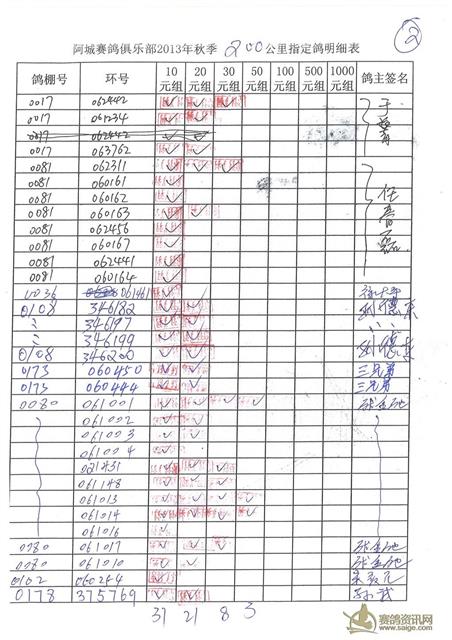 阿城赛鸽俱乐部2013年秋季 200公里指定鸽明细表
②
鸽棚号 环号 10元组 20元组 30元组 50元组 100元组 500元组 1000元组 鸽主签名
0017 062442 ✓ ✓ ✓
0017 061234 ✓ ✓
0017 062442 ✓ ✓
0017 063762 ✓ ✓
0081 062311 ✓ ✓ ✓
0081 060161 ✓
0081 060162 ✓
0081 060163 ✓ ✓
0081 062456 ✓
0081 060167 ✓
0081 062441 ✓
0081 060164 ✓
0036 061461 ✓
0108 346182 ✓ ✓
〃 346197 ✓ ✓
〃 346199 ✓ ✓
0108 346200 ✓ ✓
0173 060450 ✓ ✓ 三兄弟
0173 060444 ✓ ✓ 三兄弟
0080 061001 ✓ ✓ ✓ ✓
061002 ✓ ✓
061003 ✓ ✓
061004 ✓
021431 ✓ ✓ ✓
061148 ✓ ✓ ✓
061013 ✓ ✓ ✓ ✓
061014 ✓ ✓ ✓ ✓
061016 ✓
0080 061017 ✓ ✓
0080 061010 ✓ ✓
0102 060244 ✓ ✓
0178 375769 ✓ ✓
31 21 8 3
赛鸽资讯网
www.saige.com